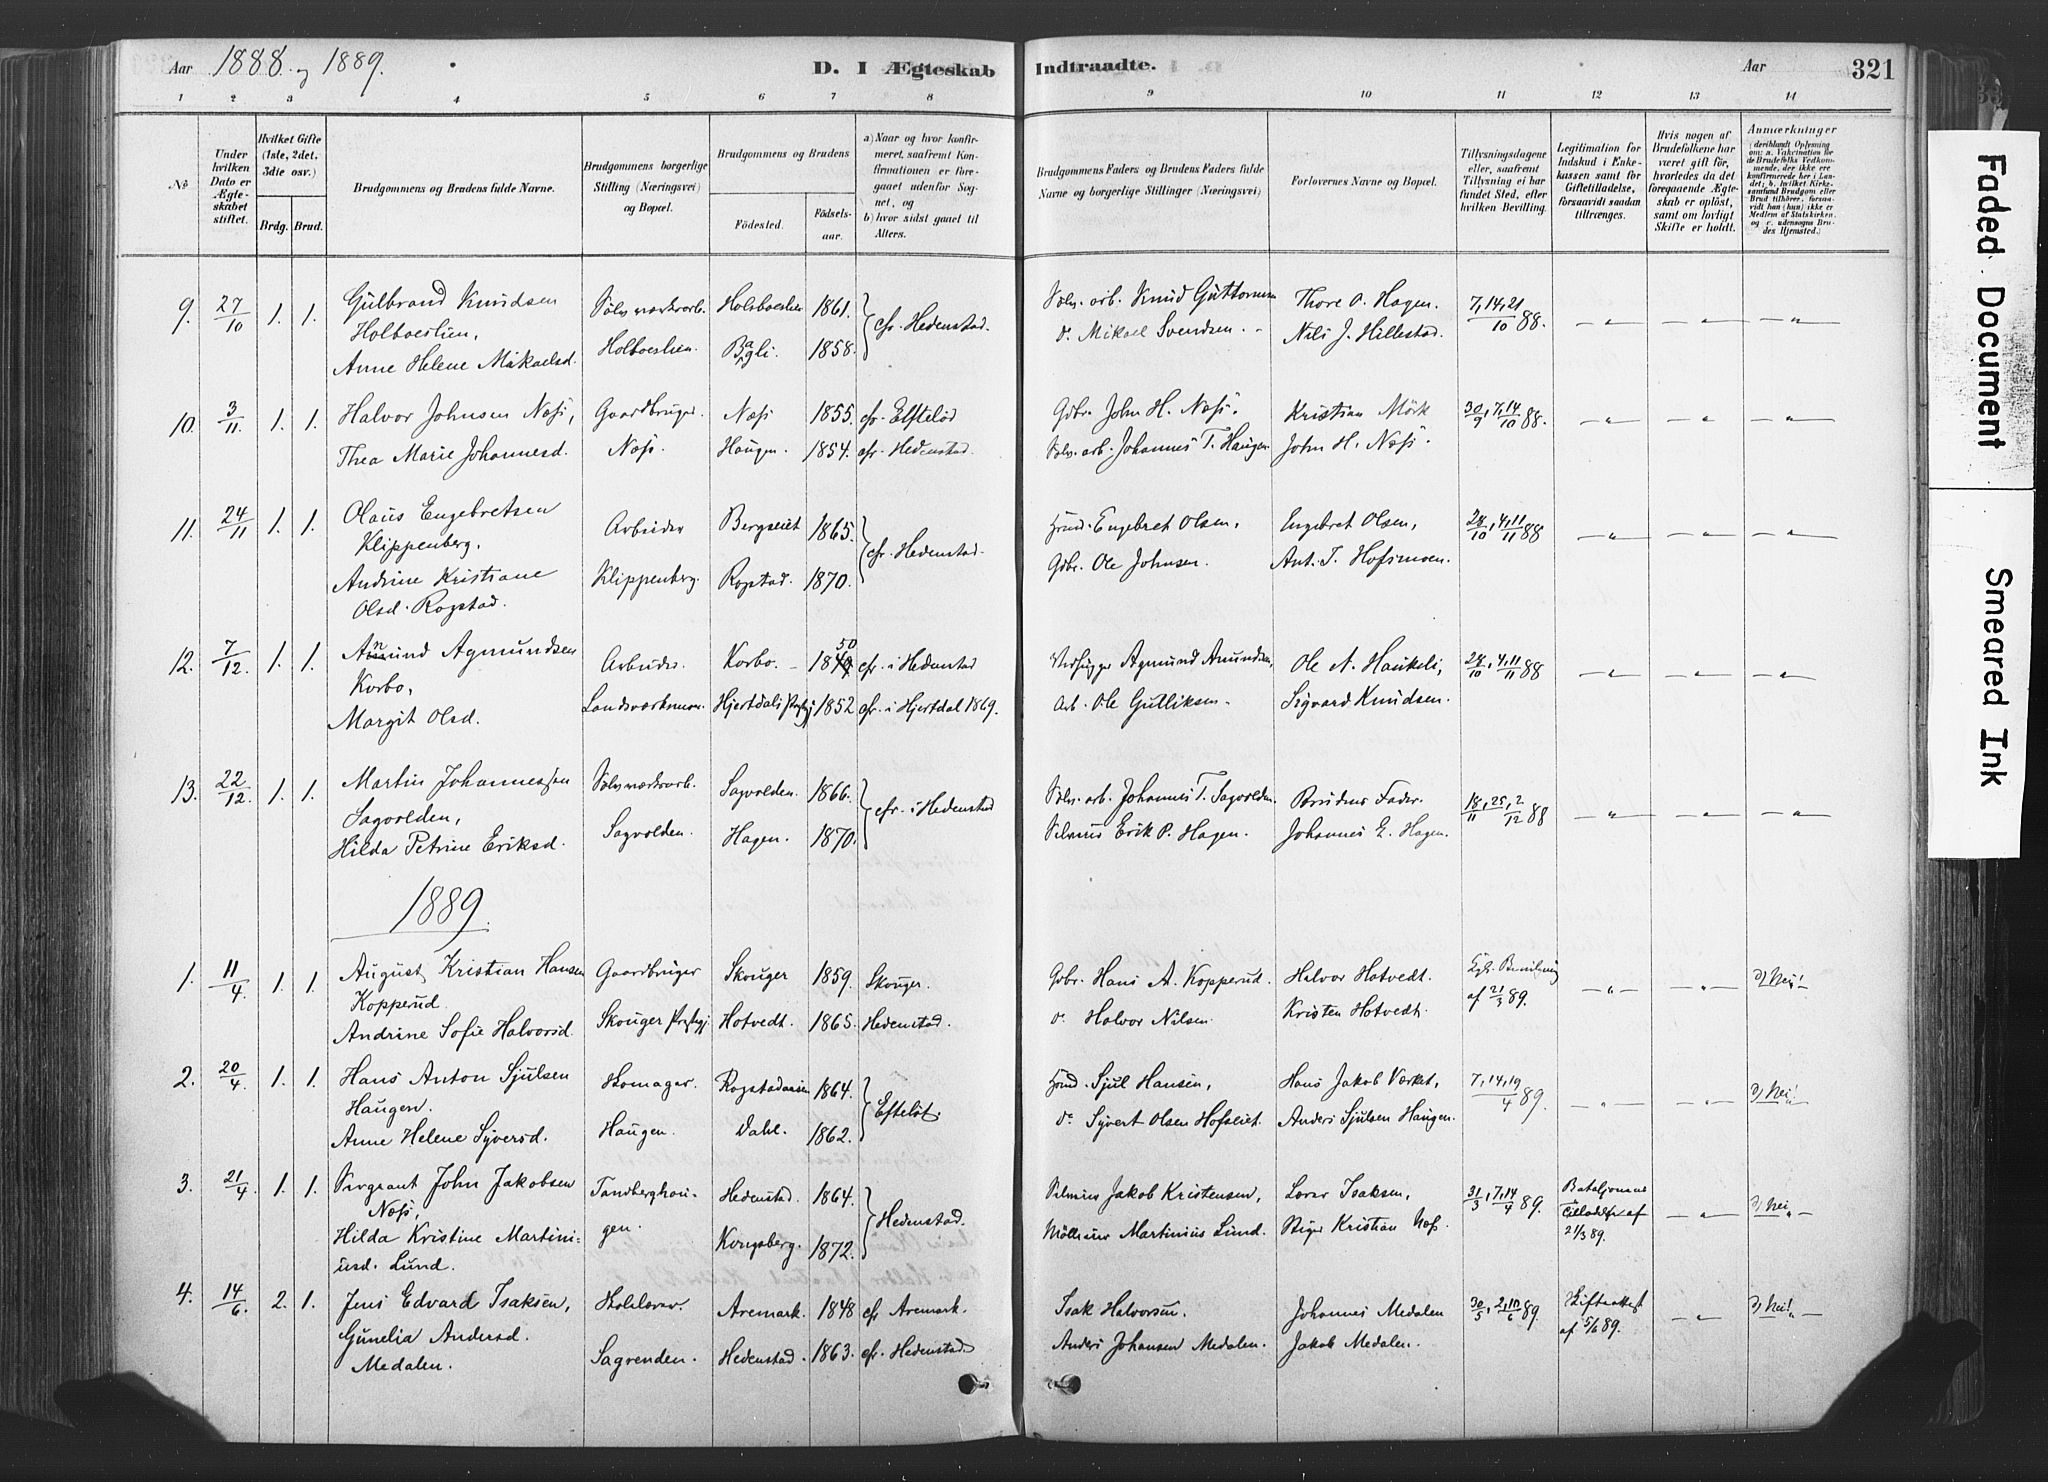 Aar 1888 og 1889.
D. I Ægteskab Indtraadte.
Aar
321
1 2 3 4 5 6 7 8 9 10 11 12 13 14
No
Under hvilken Dato er Ægteskabet stiftet.
Hvilket Gifte (1ste, 2det, 3die osv.)
Brdg. Brud.
Brudgommens og Brudens fulde Navne.
Brudgommens borgerlige Stilling (Næringsvei) og Bopæl.
Brudgommens og Brudens
Fødested. Fødselsaar.
a) Naar og hvor konfirmeret, saafremt Konfirmationen er foregaaet udenfor Sognet, og
b) hvor sidst gaaet til Alters.
Brudgommens Faders og Brudens Faders fulde Navne og borgerlige Stillinger (Næringsvei)
Forlovernes Navne og Bopæl.
Tillysningsdagene eller, saafremt Tillysning ei har fundet Sted, efter hvilken Bevilling.
Legitimation for Indskud i Enkekassen samt for Giftetilladelse, forsaavidt saadan tiltrænges.
Hvis nogen af Brudefolkene har været gift før, hvorledes da det foregaaende Ægteskab er opløst, samt om lovligt Skifte er holdt.
Anmærkninger (deriblandt Oplysning om: a. Vakcination for de Brudefolks Vedkommende, der ikke ere konfirmerede her i Landet; b. hvilket Kirkesamfund Brudgom eller Brud tilhører, forsaavidt han (hun) ikke er Medlem af Statskirken, og c. udensogns Brudes Hjemsted.)
9. 27/10 1. 1. Gulbrand Knudsen Sølvværksarb. Holsboeslien 1861. cfr. Hedenstad. Sølv. arb. Knud Guttormsen Thore A. Hagen. 7, 14, 21/10 88.
Holboeslien, Holboeslien. Bagli. 1858. do. Mikael Svendsen. Nils J. Hillestad.
Anne Helene Mikaelsd.
10. 3/11 1. 1. Halvor Johnsen Næss, Gaardbruger. Næss 1855. cfr. Efteløt Gdbr. John H. Næss. Kristian Mörk 30/9, 7, 14/10 88.
Thea Marie Johannesd. Næss. Haugen. 1854. cfr. Hedenstad. Sølv. arb. Johannes T. Haugen John H. Næss.
11. 24/11 1. 1. Olaus Engebretsen Arbeider Bergseiet 1865. cfr. Hedenstad. Hmd. Engebret Olsen, Engebret Olsen, 28/10, 4, 11/11 88
Klippenberg,
Andrine Kristiane Klippenberg. Rogstad. 1870. Gdbr. Ole Johnsen. Ant. T. Hofsmoen.
Olsd. Rogstad.
12. 7/12 1. 1. Amund Agmundsen Arbeider. Korbo. 1850 cfr. i Hedenstad Agmund Amundsen, Ole A. Haukeli, 28/10, 4, 11/11 88
Korbo, Landsværksmoen. Hjertdals Prstgj. 1852 cfr. i Hjertdal 1869. Arb. Ole Gulliksen. Sigvard Knudsen.
Margit Olsd.
13. 22/12 1. 1. Martin Johannessen Sølvværksarb. Sagvolden. 1866. cfr. i Hedenstad Sølv. arb. Johannes T. Sagvolden. Brudens Fader. 18/11, 25, 2/12 88
Sagvolden, Sagvolden. Hagen. 1870. Erik P. Hagen. Johannes E. Hagen.
Hilda Petrine Eriksd.
1889.
1. 11/4 1. 1. August Kristian Hansen Gaardbruger Skouger 1859. Skouger. Gdbr. Hans A. Kopperud. Halvor Hotvedt. Kgl. Bevilgning
Kopperud. Skouger Prstgj. Hotvedt. 1865. Hedenstad. do. Halvor Nilsen. Kristen Hotvedt. af 21/3 89. Nei!
Andrine Sofie Halvorsd.
2. 20/4 1. 1. Hans Anton Sjulsen Skomager. Rogstadaasen 1864. Efteløt. Hmd. Sjul Hansen, Hans Jakob Værket, 7, 14, 19/4 89. Nei!
Haugen. Haugen. Dahl. 1862. do. Syvert Olsen Hofseiet. Anders Sjulsen Haugen.
Anne Helene Syversd.
3. 21/4 1. 1. Sergeant John Jakobsen Tandberghaugen. Hedenstad. 1864. Hedenstad. Jakob Kristensen, Isaksen, 31/3, 7, 14/4 89. Bataljonens Tilladelse af 21/3 89. Nei
Næss,
Hilda Kristine Martiniusd. Lund. Kongsberg. 1872. Martinius Lund. Stiger Kristian Næss.
4. 14/6 2. 1. Jens Edvard Isaksen, Aremark. 1848 cfr. Aremark. Isak Halvorsen. Johannes Medalen 30/5, 2, 10/6 89. Skifteattest af 5/6 89. Nei!
Gunelia Andersd. Sagrenden. Hedenstad. 1863. cfr. Hedenstad. Anders Johansen Medalen. Jakob Medalen.
Medalen.
Faded Document
Smeared Ink